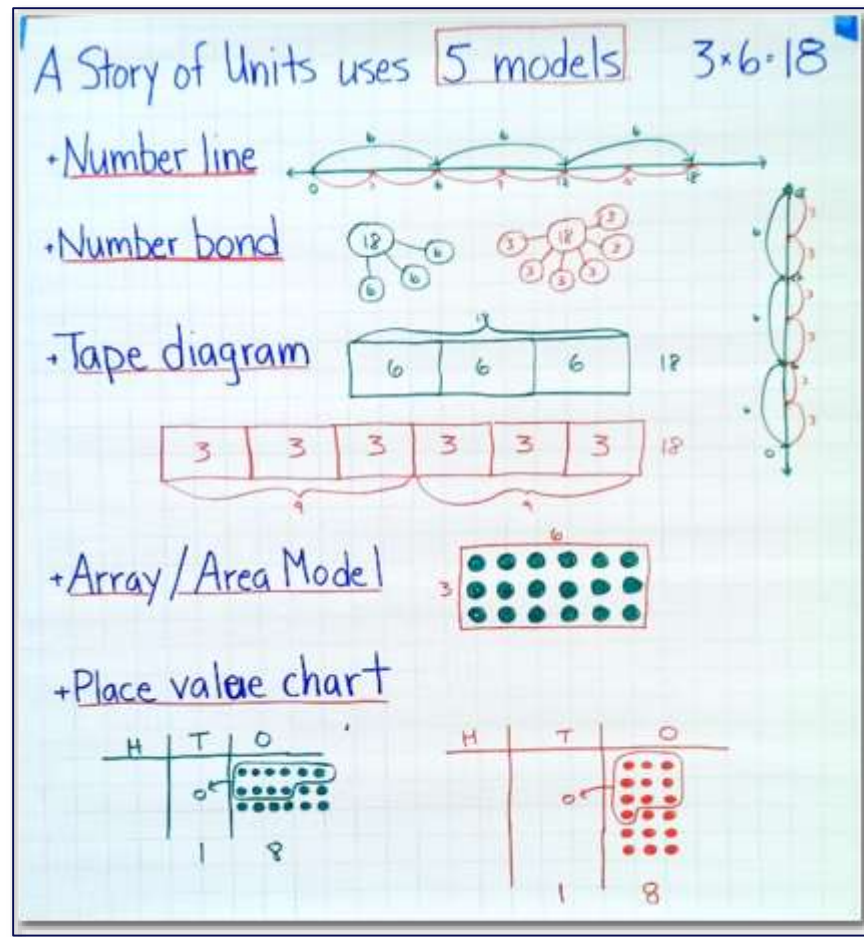 A Story of Units uses 5 models 3×6=18
+Number line
6 6 6
0 3 6 9 12 15 18
+Number bond
18 6 6 6
18 3 3 3 3 3 3
+Tape diagram
18
6 6 6 18
3 3 3 3 3 3 18
9 9
+Array/Area Model
6
3
+Place value chart
H T O
1 8
H T O
1 8